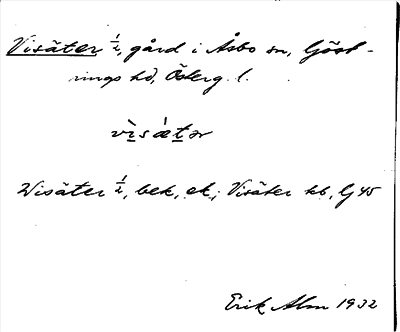 Visäter ½, gård i Åsbo sn, Göst-
rings hd, Österg. l.
vìsǽtər
Wisäter ½, bek, ek; Visäter kb, Gj 45
Erik Alm 1932